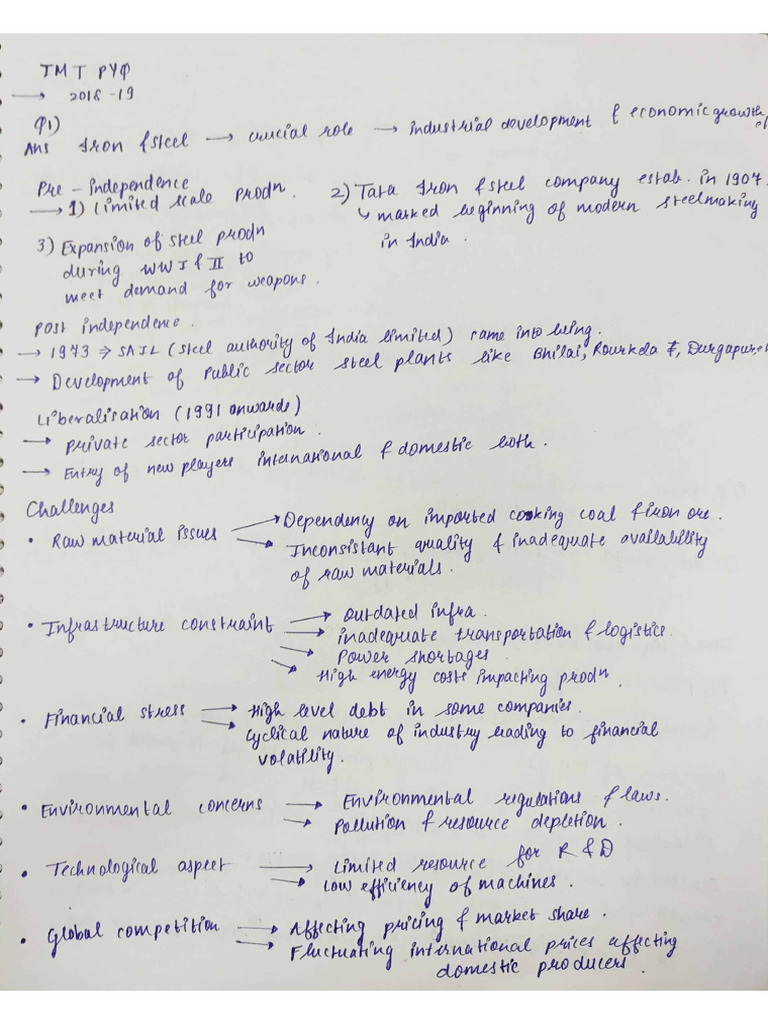 TMT PYQ
→ 2018-19
Q1)
Ans Iron & steel → crucial role → industrial development & economic growth
Pre-independence
→ 1) Limited scale prodn. 2) Tata Iron & steel company estab. in 1907.
↳ marked beginning of modern steelmaking
in India.
3) Expansion of steel prodn
during WW I & II to
meet demand for weapons.
Post independence.
→ 1973 ⇒ SAIL (Steel authority of India limited) came into being.
→ Development of Public sector steel plants like Bhilai, Rourkela &, Durgapur, etc
Liberalisation (1991 onwards)
→ Private sector participation.
→ Entry of new players international & domestic both.
Challenges
• Raw material issues → Dependency on imported cooking coal & iron ore.
→ Inconsistant quality & inadequate availability
of raw materials.
• Infrastructure constraint → outdated infra.
→ inadequate transportation & logistics.
→ Power shortages.
→ High energy costs impacting prodn.
• Financial stress → High level debt in some companies.
→ Cyclical nature of industry leading to financial
volatility.
• Environmental concerns → Environmental regulations & laws.
→ Pollution & resource depletion.
• Technological aspect → Limited resource for R & D
→ Low efficiency of machines.
• Global competition → Affecting pricing & market share.
→ Fluctuating international prices affecting
domestic producers.